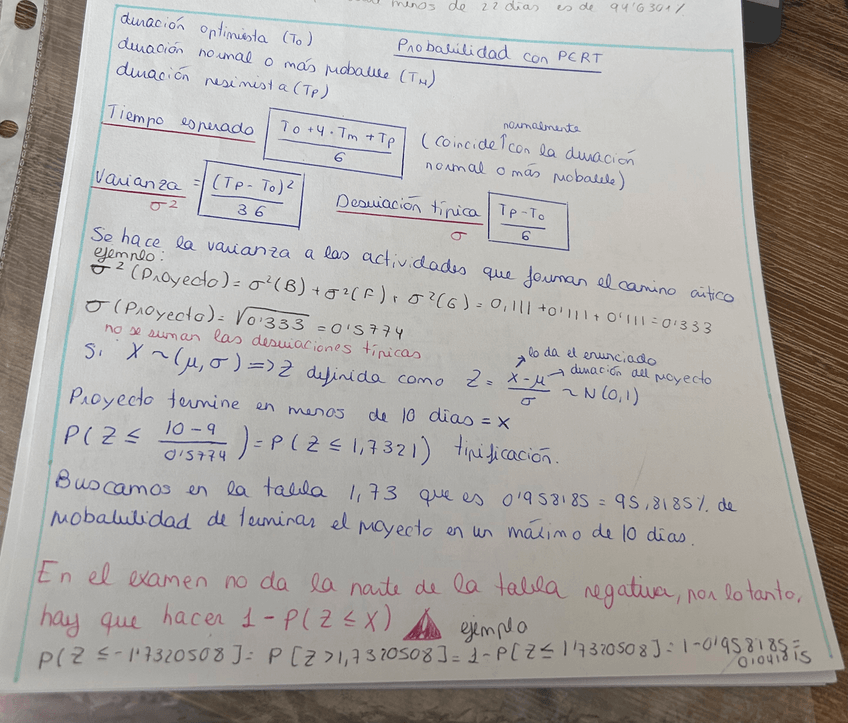 menos de 22 dias es de 94'6301%
duración optimista (To)
Probabilidad con PERT
duración normal o más probable (TM)
duración pesimista (Tp)
Tiempo esperado To + 4 · Tm + Tp / 6 (coincide ↑ normalmente con la duración
normal o más probable)
Varianza σ² = (Tp - To)² / 36 Desviación típica σ Tp - To / 6
Se hace la varianza a las actividades que forman el camino crítico
ejemplo:
σ² (Proyecto) = σ²(B) + σ²(F) + σ²(G) = 0,111 + 0'111 + 0'111 = 0'333
σ (Proyecto) = √0'333 = 0'5774
no se suman las desviaciones típicas
Si X ~ (μ, σ) => Z definida como Z = x - μ / σ ~ N(0,1)
→ lo da el enunciado
→ duración del proyecto
Proyecto termine en menos de 10 dias = x
P( Z ≤ 10 - 9 / 0'5774 ) = P( Z ≤ 1,7321) tipificación.
Buscamos en la tabla 1,73 que es 0'958185 = 95,8185% de
probabilidad de terminar el proyecto en un máximo de 10 dias.
En el examen no da la parte de la tabla negativa, por lo tanto,
hay que hacer 1 - P( Z ≤ X) ejemplo
P[ Z ≤ -1'7320508] = P[ Z > 1,7320508] = 1 - P[ Z ≤ 1'7320508] = 1 - 0'958185 =
0'041815